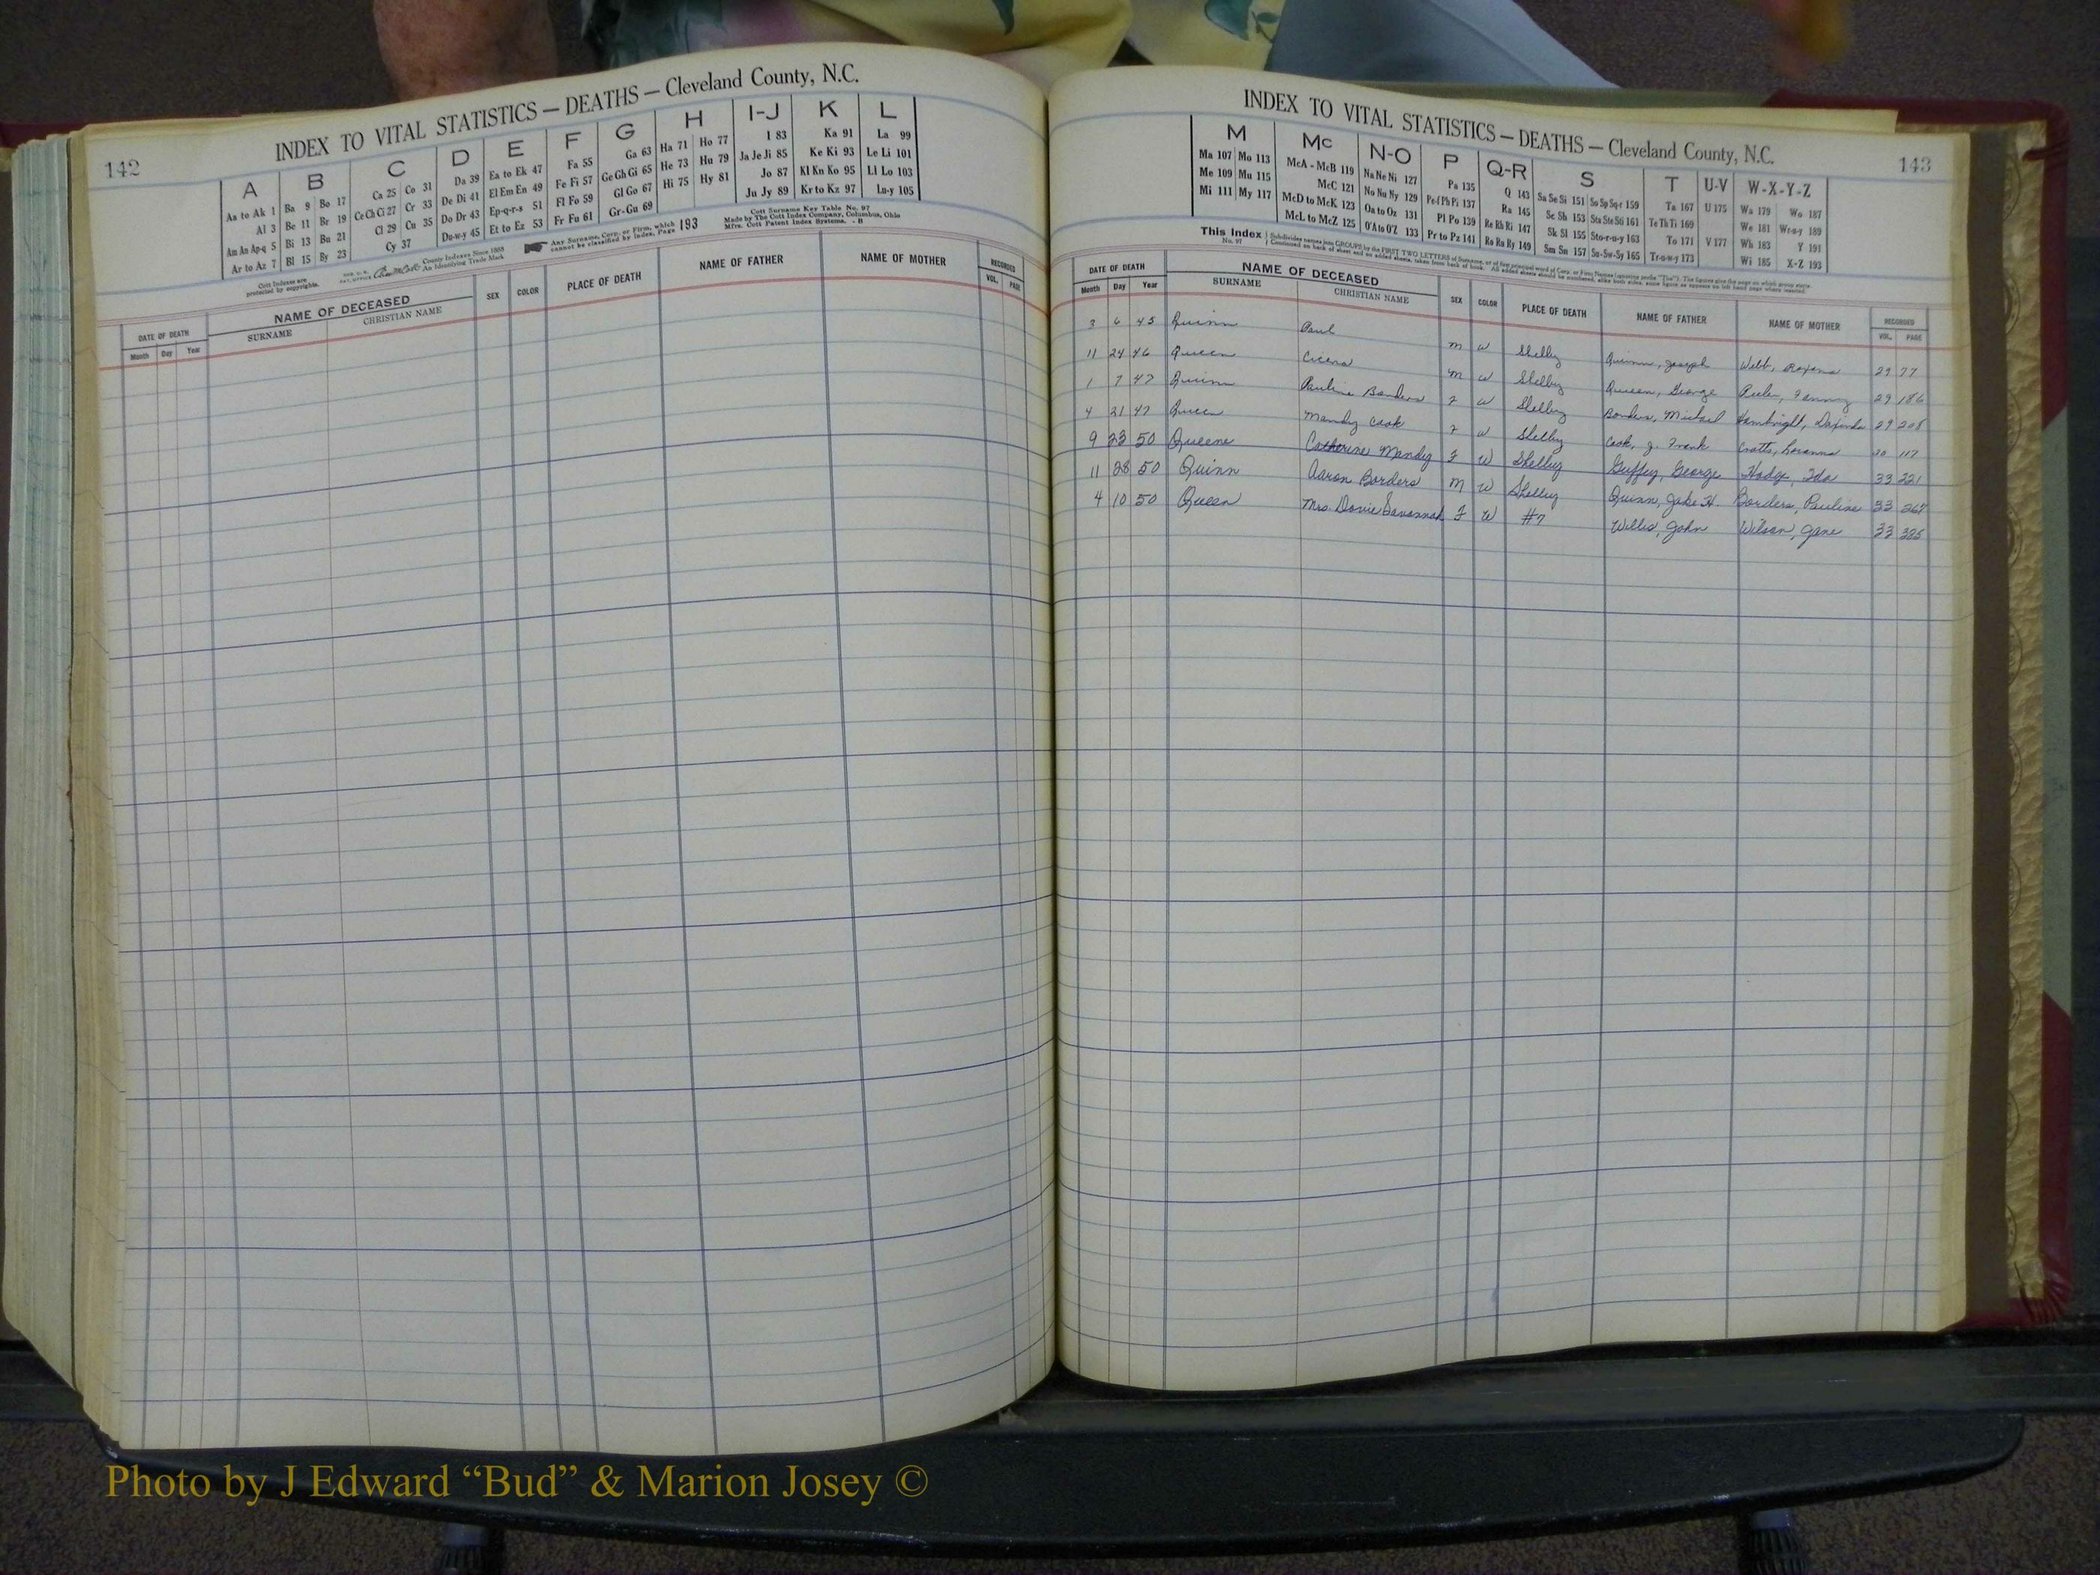 142
INDEX TO VITAL STATISTICS — DEATHS — Cleveland County, N.C.
A B C D E F G H I-J K L
Aa to Ak 1 Ba 9 Bo 17 Ca 25 Co 31 Da 39 Ea to Ek 47 Fa 55 Ga 63 Ha 71 Ho 77 I 83 Ka 91 La 99
Al 3 Be 11 Br 19 Ce Ch Ci 27 Cr 33 De Di 41 El Em En 49 Fe Fi 57 Ge Gh Gi 65 He 73 Hu 79 Ja Je Ji 85 Ke Ki 93 Le Li 101
Am An Ap-q 5 Bi 13 Bu 21 Cl 29 Cu 35 Do Dr 43 Ep-q-r-s 51 Fl Fo 59 Gl Go 67 Hi 75 Hy 81 Jo 87 Kl Kn Ko 95 Ll Lo 103
Ar to Az 7 Bl 15 By 23 Cy 37 Du-w-y 45 Et to Ez 53 Fr Fu 61 Gr-Gu 69 Ju Jy 89 Kr to Kz 97 Lu-y 105
Cott Indexes are protected by copyrights.
County Indexes Since 1888
An Identifying Trade Mark
Any Surname, Corp. or Firm, which cannot be classified by index, Page 193
Cott Surname Key Table No. 97
Made by The Cott Index Company, Columbus, Ohio
Mfrs. Cott Patent Index Systems. - B
DATE OF DEATH NAME OF DECEASED SEX COLOR PLACE OF DEATH NAME OF FATHER NAME OF MOTHER RECORDED
Month Day Year SURNAME CHRISTIAN NAME VOL. PAGE
INDEX TO VITAL STATISTICS — DEATHS — Cleveland County, N.C.
143
M Mc N-O P Q-R S T U-V W-X-Y-Z
Ma 107 Mo 113 McA - McB 119 Na Ne Ni 127 Pa 135 Q 143 Sa Se Si 151 So Sp Sq-r 159 Ta 167 U 175 Wa 179 Wo 187
Me 109 Mu 115 McC 121 No Nu Ny 129 Pe-f Ph Pi 137 Ra 145 Sc Sh 153 Sta Ste Sti 161 Te Th Ti 169 We 181 Wr-u-y 189
Mi 111 My 117 McD to McK 123 Oa to Oz 131 Pl Po 139 Re Rh Ri 147 Sk Sl 155 Sto-r-u-y 163 To 171 V 177 Wh 183 Y 191
McL to McZ 125 O'A to O'Z 133 Pr to Pz 141 Ro Ru Ry 149 Sm Sn 157 Su-Sw-Sy 165 Tr-u-w-y 173 Wi 185 X-Z 193
This Index No. 97
DATE OF DEATH NAME OF DECEASED SEX COLOR PLACE OF DEATH NAME OF FATHER NAME OF MOTHER RECORDED
Month Day Year SURNAME CHRISTIAN NAME VOL. PAGE
3 6 45 Quinn Paul M W Shelby Quinn, Joseph Webb, Roxanna 29 77
11 24 46 Queen Cicero M W Shelby Queen, George Fanny 29 186
1 7 47 Quinn Pauline Borders F W Shelby Borders, Michael Hambright, 29 208
4 21 47 Queen Mandy Cook F W Shelby Cook, J. Frank Crotts, 30 117
9 23 50 Queene Catherine Mandy F W Shelby Guffey, George Hodge, Ida 33 221
11 28 50 Quinn Aaron Borders M W Shelby Quinn, Jake H. Borders, Pauline 33 267
4 10 50 Queen Mrs. Dovie Savannah F W #7 Willis, John Wilson, Jane 33 385
Photo by J Edward “Bud” & Marion Josey ©